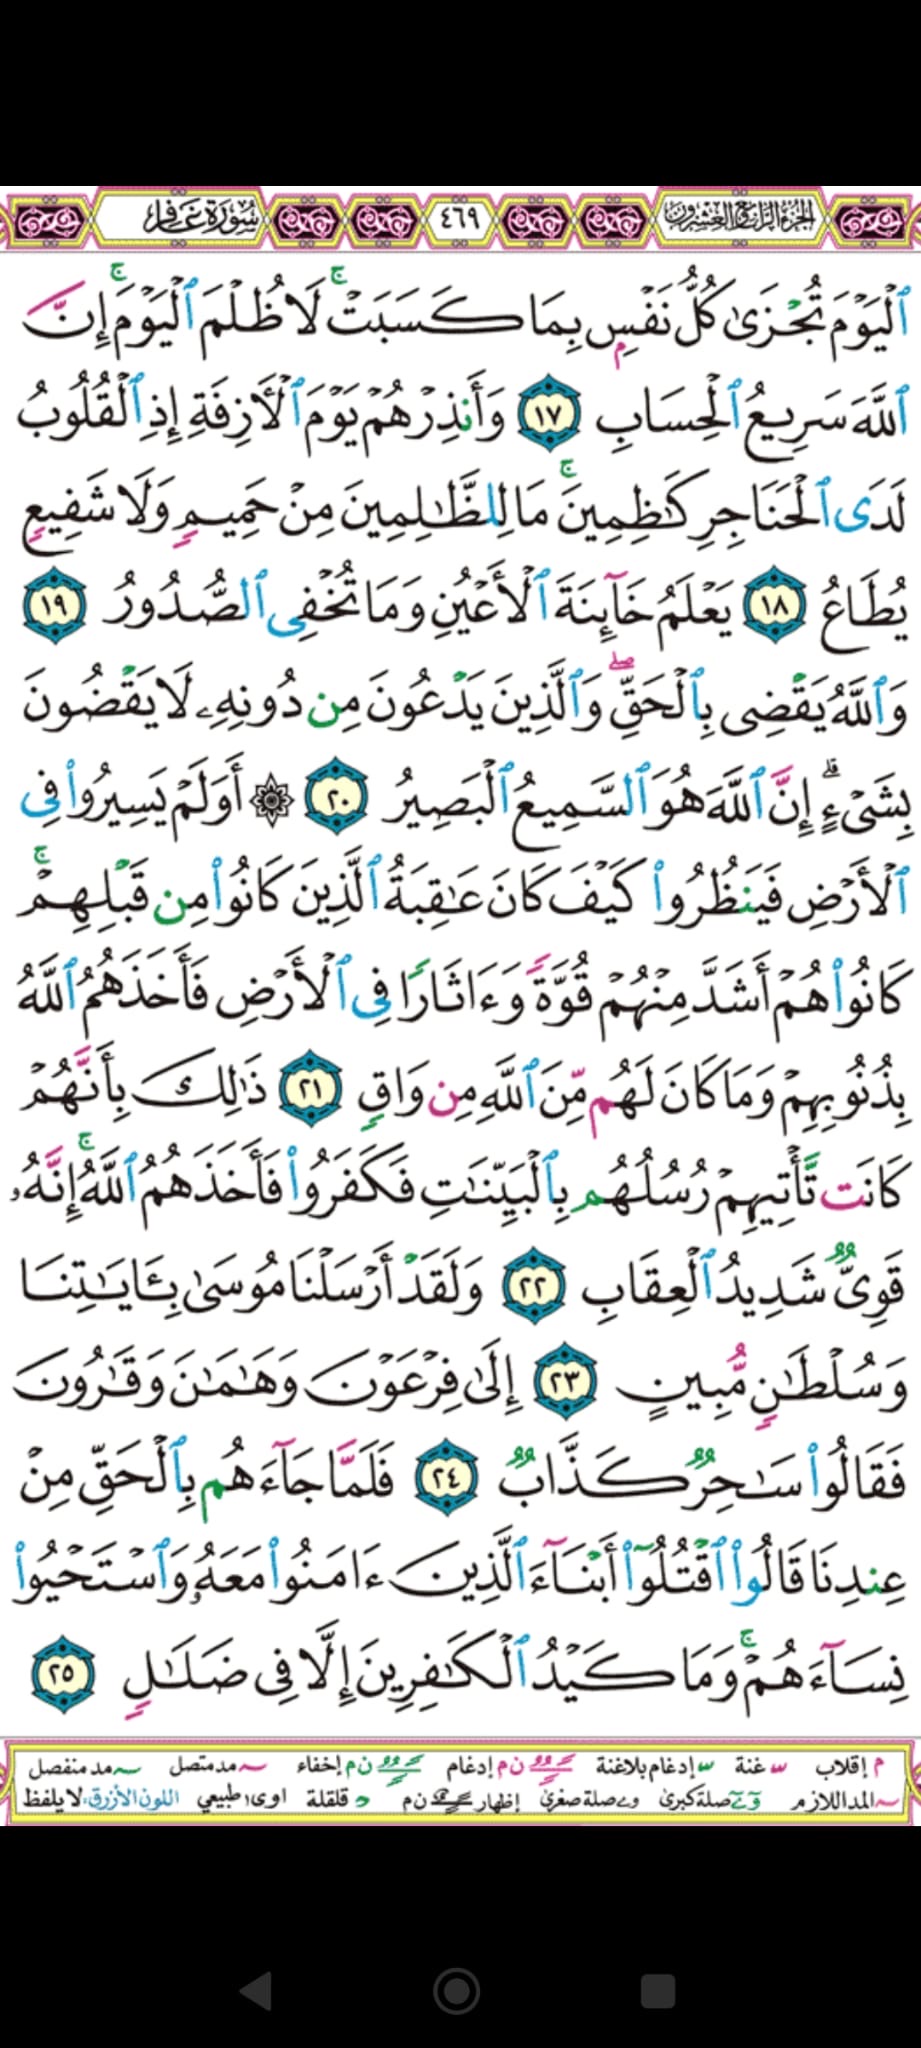 الجزء الرابع والعشرون ٤٦٩ سورة غافر
ٱلْيَوْمَ تُجْزَىٰ كُلُّ نَفْسٍۭ بِمَا كَسَبَتْ ۚ لَا ظُلْمَ ٱلْيَوْمَ ۚ إِنَّ
ٱللَّهَ سَرِيعُ ٱلْحِسَابِ ١٧ وَأَنذِرْهُمْ يَوْمَ ٱلْـَٔازِفَةِ إِذِ ٱلْقُلُوبُ
لَدَى ٱلْحَنَاجِرِ كَـٰظِمِينَ ۚ مَا لِلظَّـٰلِمِينَ مِنْ حَمِيمٍ وَلَا شَفِيعٍ
يُطَاعُ ١٨ يَعْلَمُ خَآئِنَةَ ٱلْأَعْيُنِ وَمَا تُخْفِى ٱلصُّدُورُ ١٩
وَٱللَّهُ يَقْضِى بِٱلْحَقِّ ۖ وَٱلَّذِينَ يَدْعُونَ مِن دُونِهِۦ لَا يَقْضُونَ
بِشَىْءٍ ۗ إِنَّ ٱللَّهَ هُوَ ٱلسَّمِيعُ ٱلْبَصِيرُ ٢٠ ۞ أَوَلَمْ يَسِيرُوا۟ فِى
ٱلْأَرْضِ فَيَنظُرُوا۟ كَيْفَ كَانَ عَـٰقِبَةُ ٱلَّذِينَ كَانُوا۟ مِن قَبْلِهِمْ ۚ
كَانُوا۟ هُمْ أَشَدَّ مِنْهُمْ قُوَّةً وَءَاثَارًا فِى ٱلْأَرْضِ فَأَخَذَهُمُ ٱللَّهُ
بِذُنُوبِهِمْ وَمَا كَانَ لَهُم مِّنَ ٱللَّهِ مِن وَاقٍ ٢١ ذَٰلِكَ بِأَنَّهُمْ
كَانَت تَّأْتِيهِمْ رُسُلُهُم بِٱلْبَيِّنَـٰتِ فَكَفَرُوا۟ فَأَخَذَهُمُ ٱللَّهُ ۚ إِنَّهُۥ
قَوِىٌّ شَدِيدُ ٱلْعِقَابِ ٢٢ وَلَقَدْ أَرْسَلْنَا مُوسَىٰ بِـَٔايَـٰتِنَا
وَسُلْطَـٰنٍ مُّبِينٍ ٢٣ إِلَىٰ فِرْعَوْنَ وَهَـٰمَـٰنَ وَقَـٰرُونَ
فَقَالُوا۟ سَـٰحِرٌ كَذَّابٌ ٢٤ فَلَمَّا جَآءَهُم بِٱلْحَقِّ مِنْ
عِندِنَا قَالُوا۟ ٱقْتُلُوٓا۟ أَبْنَآءَ ٱلَّذِينَ ءَامَنُوا۟ مَعَهُۥ وَٱسْتَحْيُوا۟
نِسَآءَهُمْ ۚ وَمَا كَيْدُ ٱلْكَـٰفِرِينَ إِلَّا فِى ضَلَـٰلٍ ٢٥
م إقلاب غنة إدغام بلاغنة ن م إدغام ن م إخفاء مد متصل مد منفصل
المد اللازم صلة كبرى صلة صغرى إظهار ن م قلقلة اوى طبيعي اللون الأزرق لا يلفظ